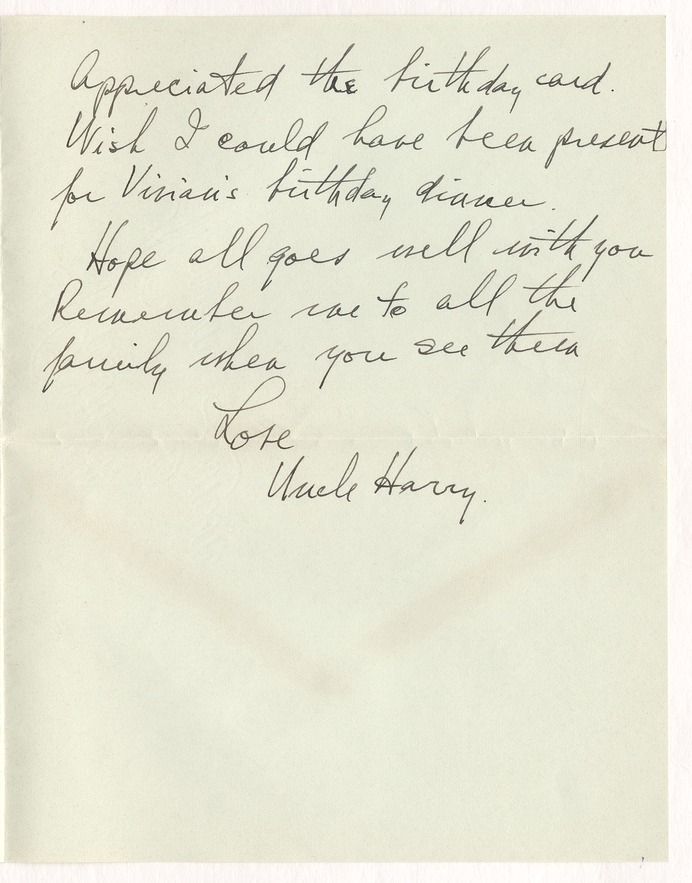 Appreciated the birthday card.
Wish I could have been present
for Vivian's birthday dinner.
Hope all goes well with you
Remember me to all the
family when you see them
Love
Uncle Harry.